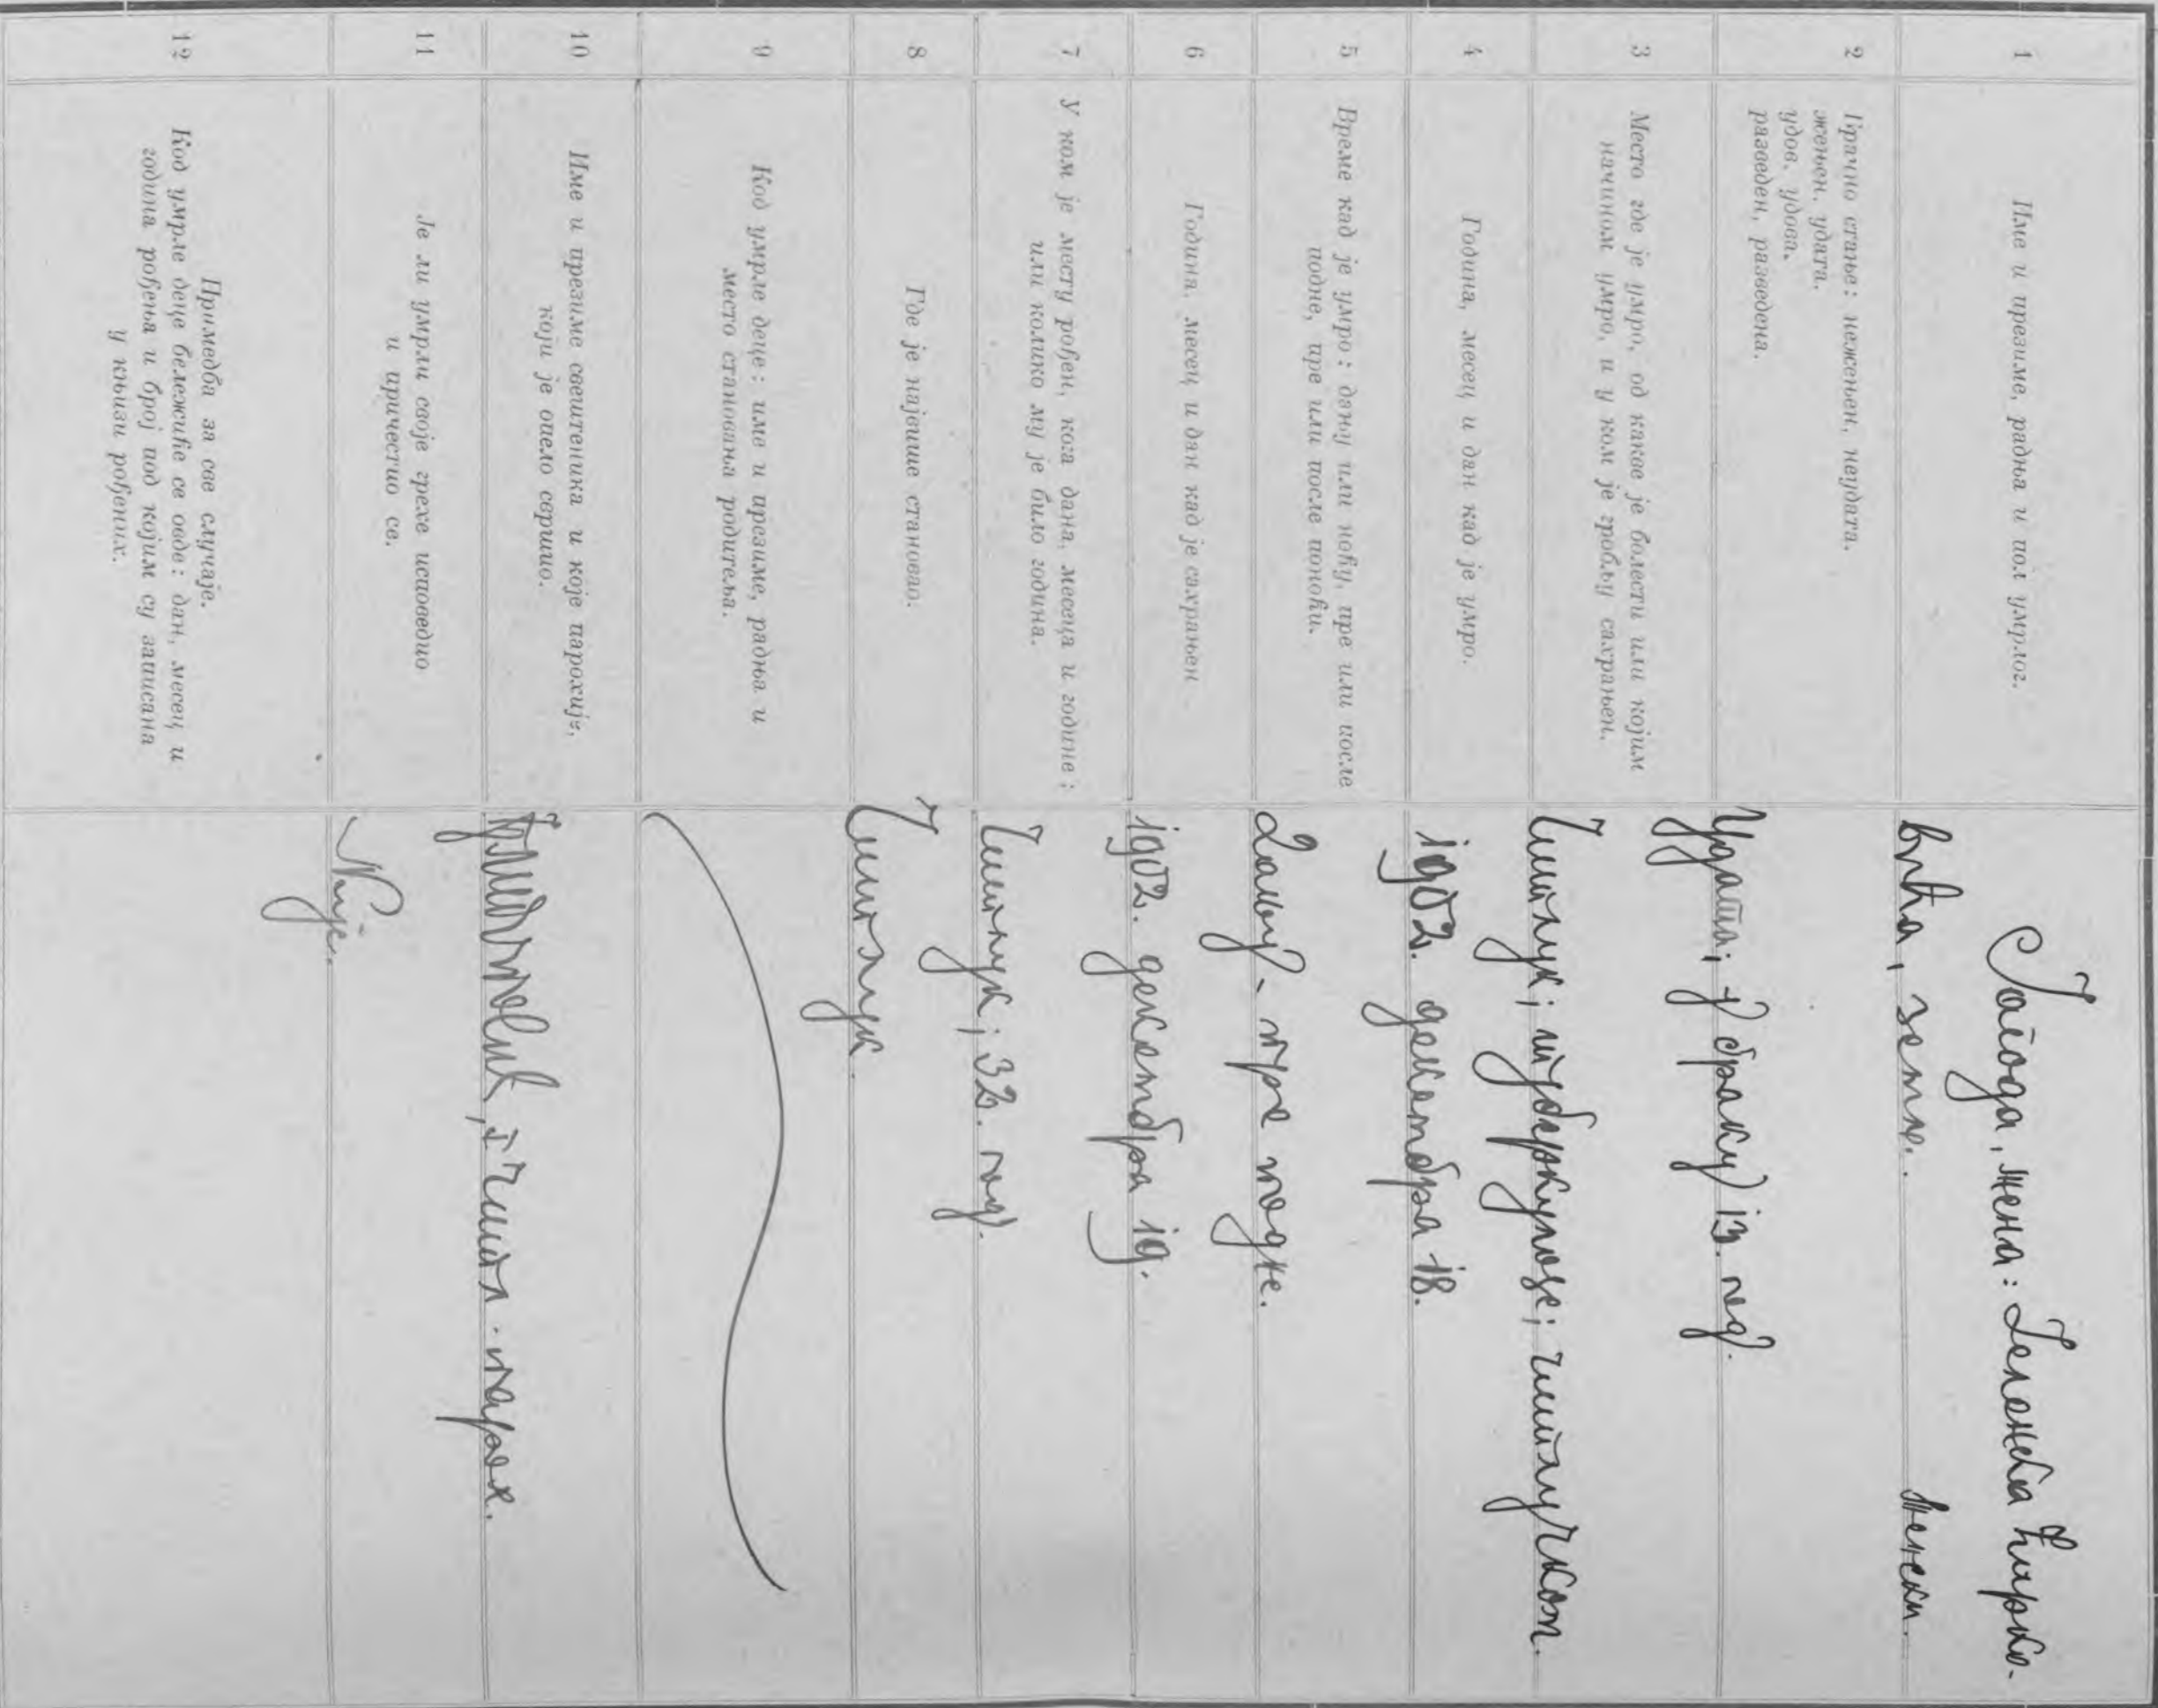 1
Име и презиме, радња и пол умрлог.
Јагода, жена: Зеленка Ћирко-
вића, земљ. женски.
2
Брачно стање: нежењен, неудата.
жењен, удата.
удов, удова.
разведен, разведена.
Удата; у браку 13. год.
3
Место где је умро, од какве је болести или којим
начином умро, и у ком је гробљу сахрањен.
Чишлук; туберкулозе; чишлучком.
4
Година, месец и дан кад је умро.
1902. декембра 18.
5
Време кад је умро: дању или ноћу, пре или после
подне, пре или после поноћи.
Дању - пре подне.
6
Година, месец и дан кад је сахрањен
1902. декембра 19.
7
У ком је месту рођен, кога дана, месеца и године;
или колико му је било година.
Чишлук; 32. год.
8
Где је највише становао.
Чишлук.
9
Код умрле деце: име и презиме, радња и
место становања родитеља.
10
Име и презиме свештеника и које парохије,
који је опело свршио.
парох.
11
Је ли умрли своје грехе исповедио
и причестио се.
Није.
12
Примедба за све случаје.
Код умрле деце бележиће се овде: дан, месец и
година рођења и број под којим су записана
у књизи рођених.